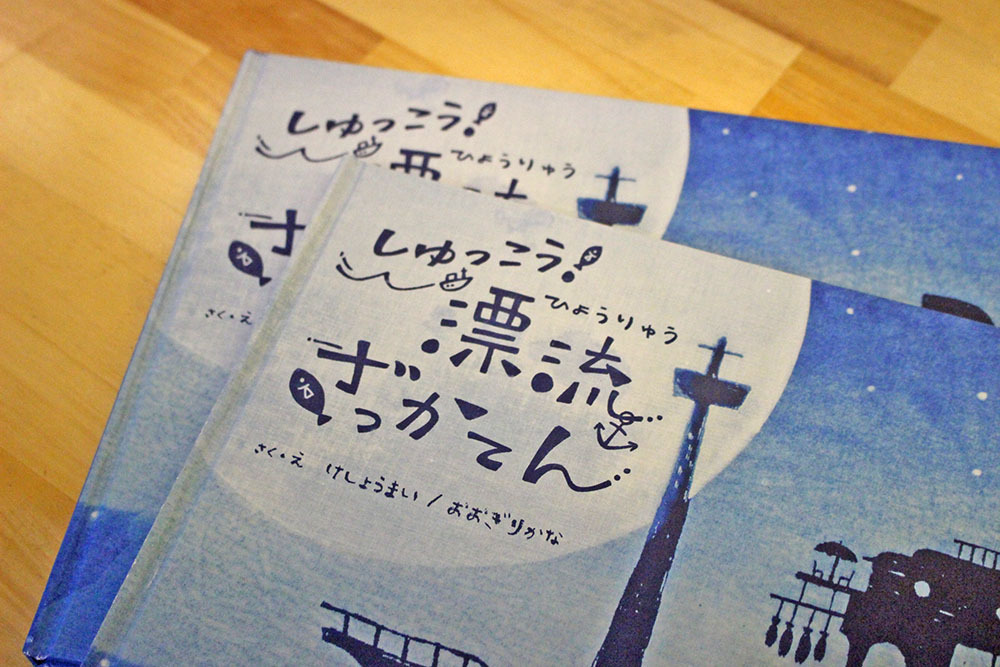 しゅっこう!
ひょうりゅう
さく・え
しゅっこう!
ひょうりゅう
漂流
ざっかてん
さく・え けしょうまい/おおぎりかな